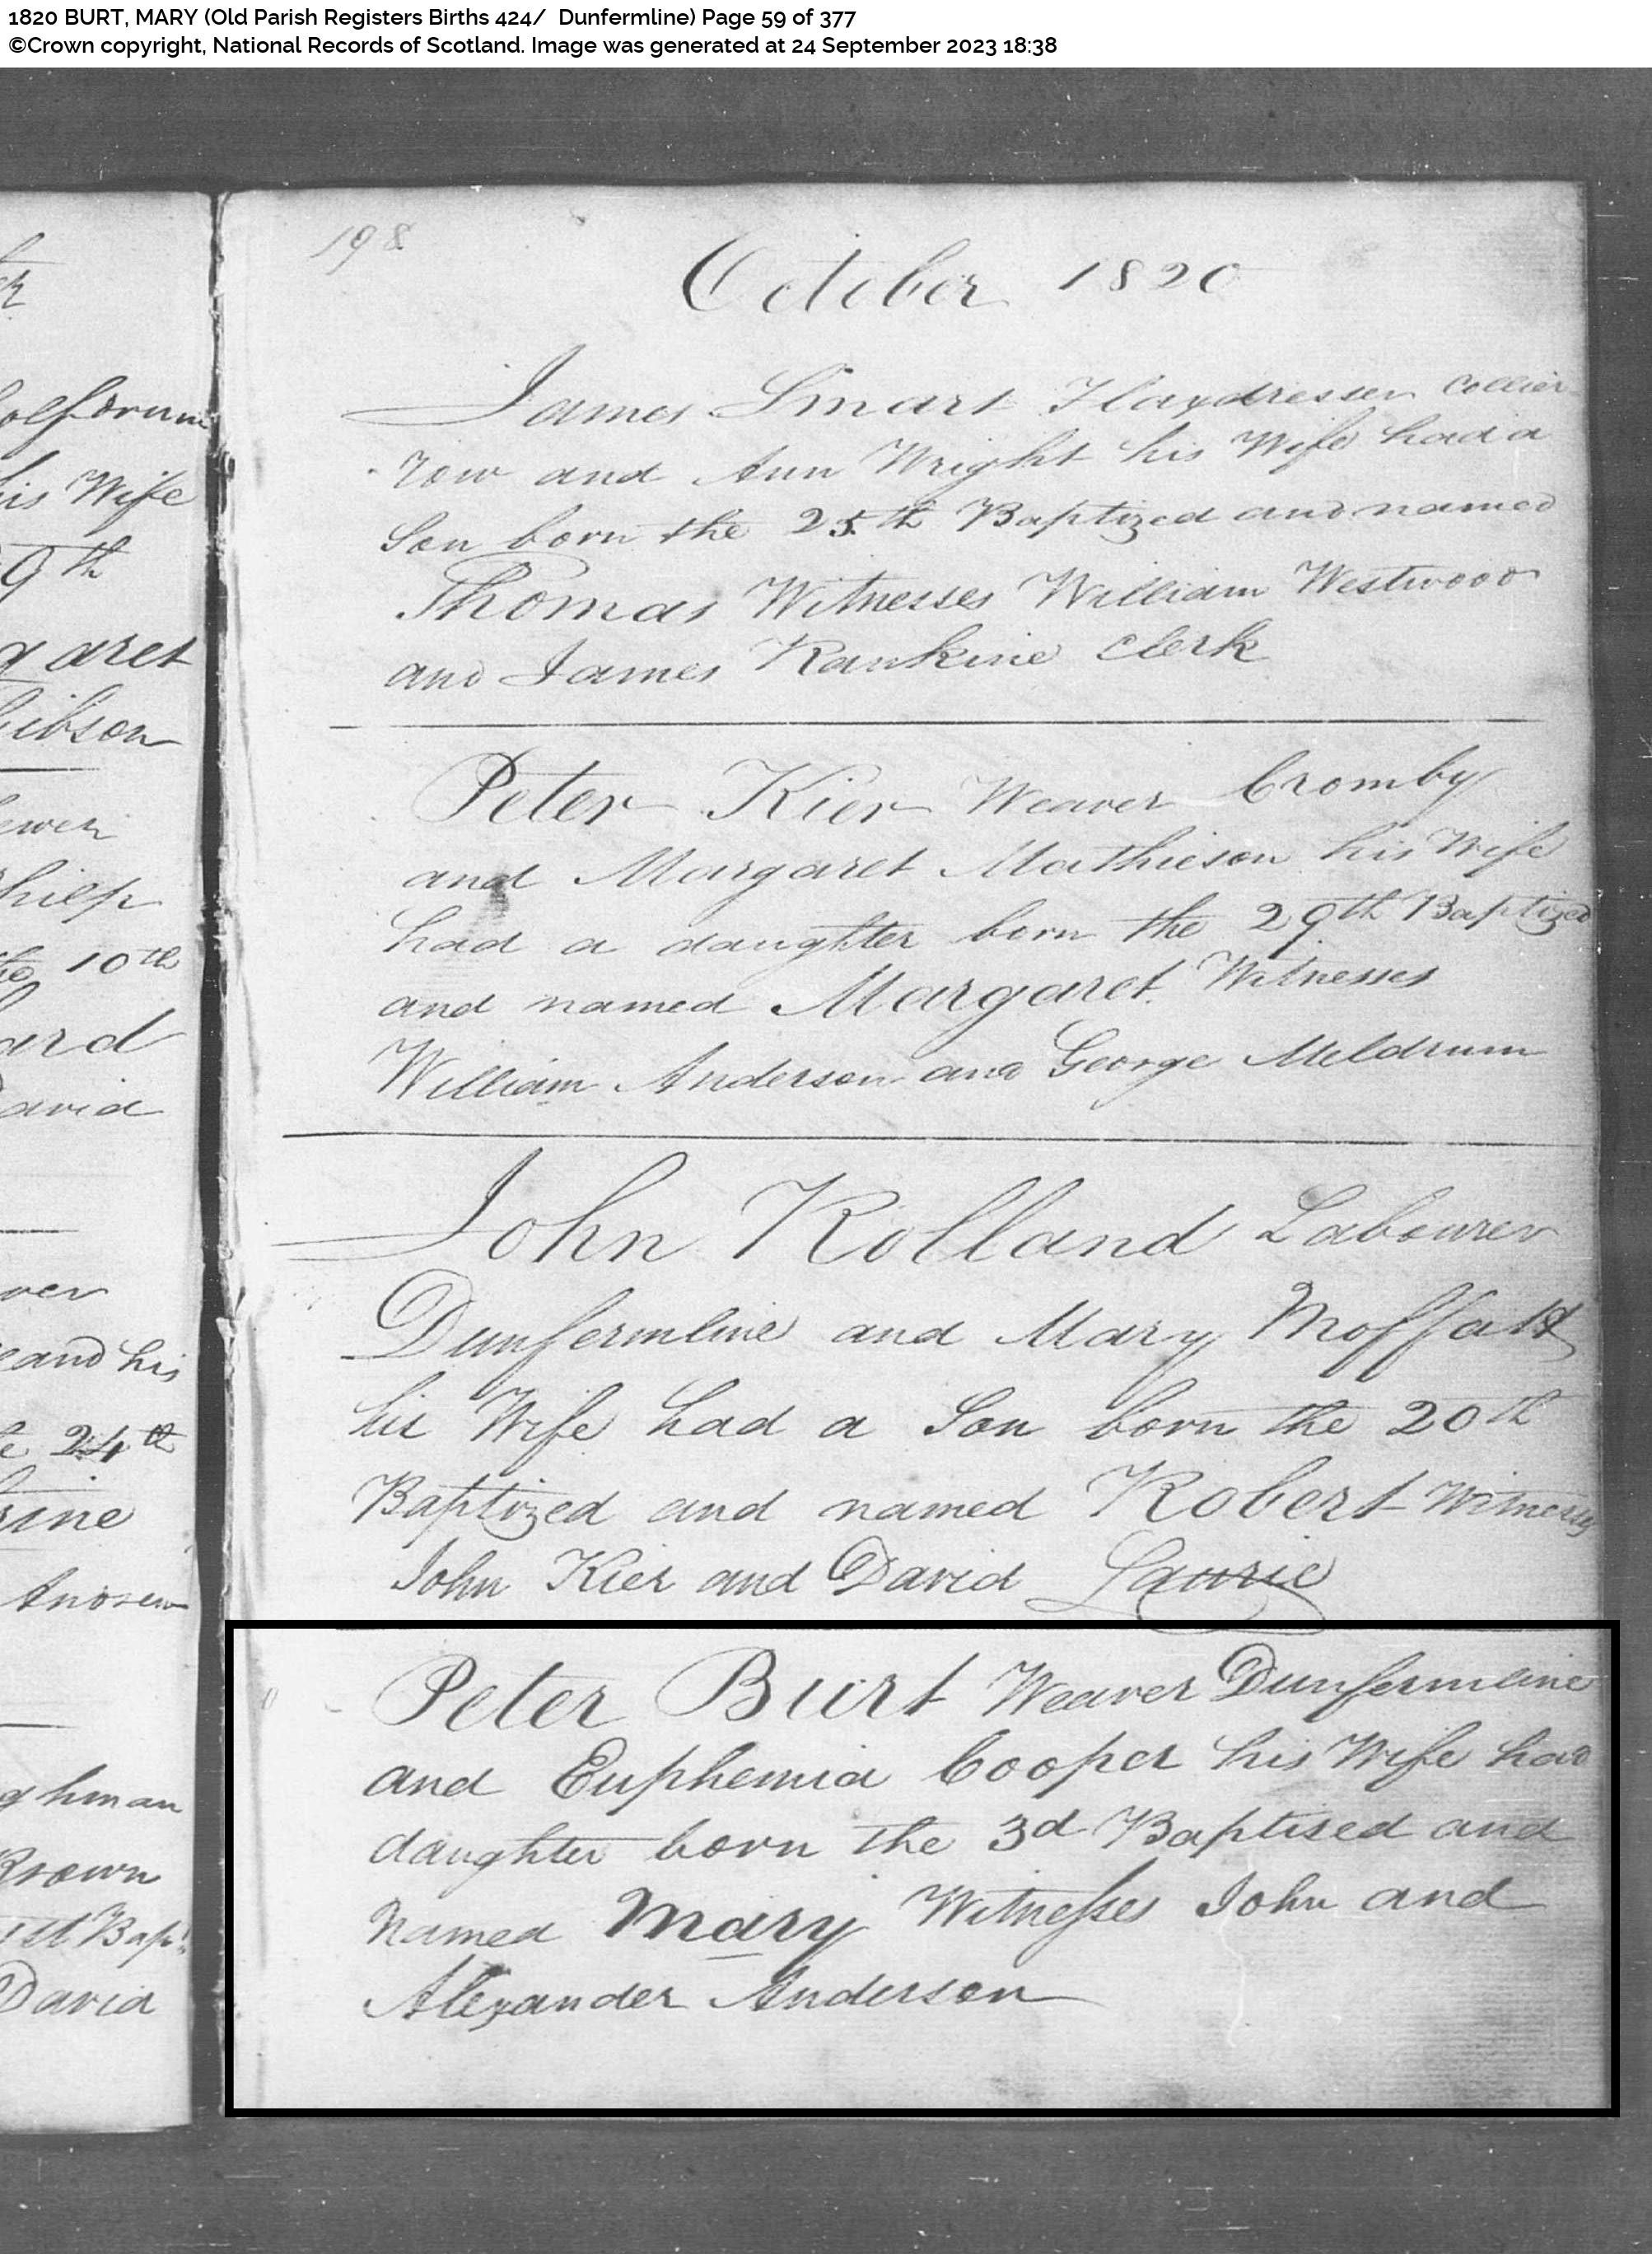 1820 BURT, MARY (Old Parish Registers Births 424/ Dunfermline) Page 59 of 377
©Crown copyright, National Records of Scotland. Image was generated at 24 September 2023 18:38
198
October 1820
James Smart Flaxdresser Collier
row and Ann Wright his Wife had a
Son born the 25th Baptized and named
Thomas Witnesses William Westwood
and James Rankine Clerk
Peter Kier Weaver Cromby
and Margaret Mathieson his Wife
had a daughter born the 29th Baptized
and named Margaret Witnesses
William Anderson and George Meldrum
John Kolland Labourer
Dunfermline and Mary
his Wife had a Son born the 20th
Baptized and named Robert Witnesses
John Kier and David Laurie
Peter Burt Weaver Dunfermline
and Euphemia Cooper his Wife had
daughter born the 3d Baptised and
Named Mary Witnesses John and
Alexander Anderson
his Wife
9th
garet
Gibson
10th
avid
and his
24th
rine
ghman
Brown
David